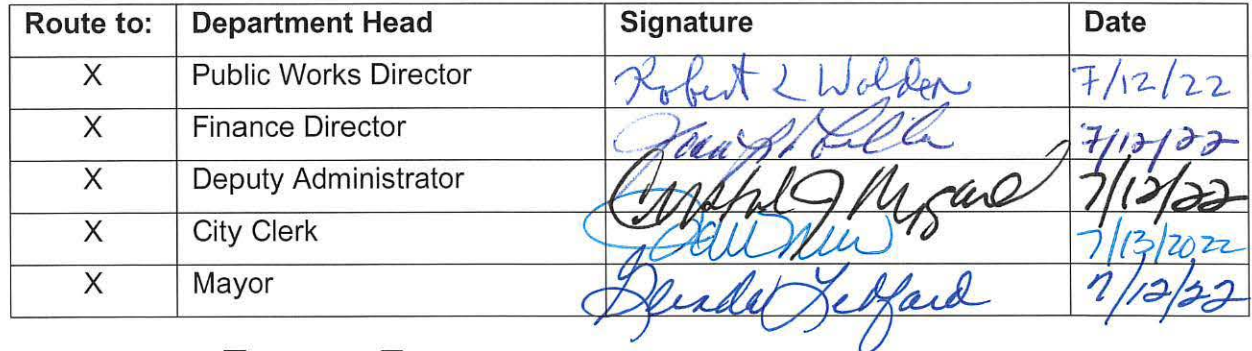 Route to: Department Head Signature Date
X Public Works Director Robert L Wolden 7/12/22
X Finance Director 7/12/22
X Deputy Administrator 7/12/22
X City Clerk 7/13/2022
X Mayor Glenda Ledford 7/12/22